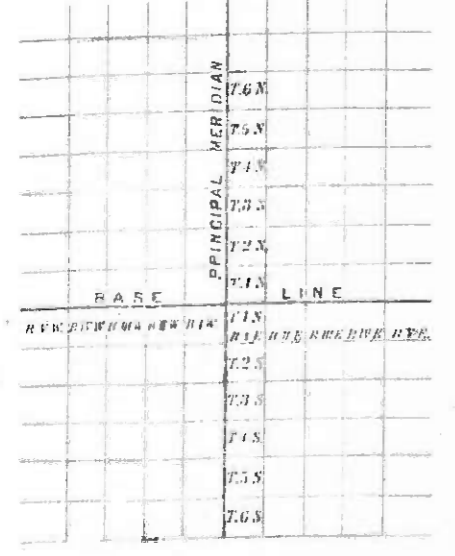 PRINCIPAL MERIDIAN
T.6 N.
T.5 N
T 4 N.
T.3 N.
T 2 N.
T.1 N
BASE LINE
R V W R IV W R III W R II W R I W
T 1 S.
R I E R II E R III E R IV E R V E.
T.2 S
T.3 S
T 4 S.
T.5 S
T.6 S.